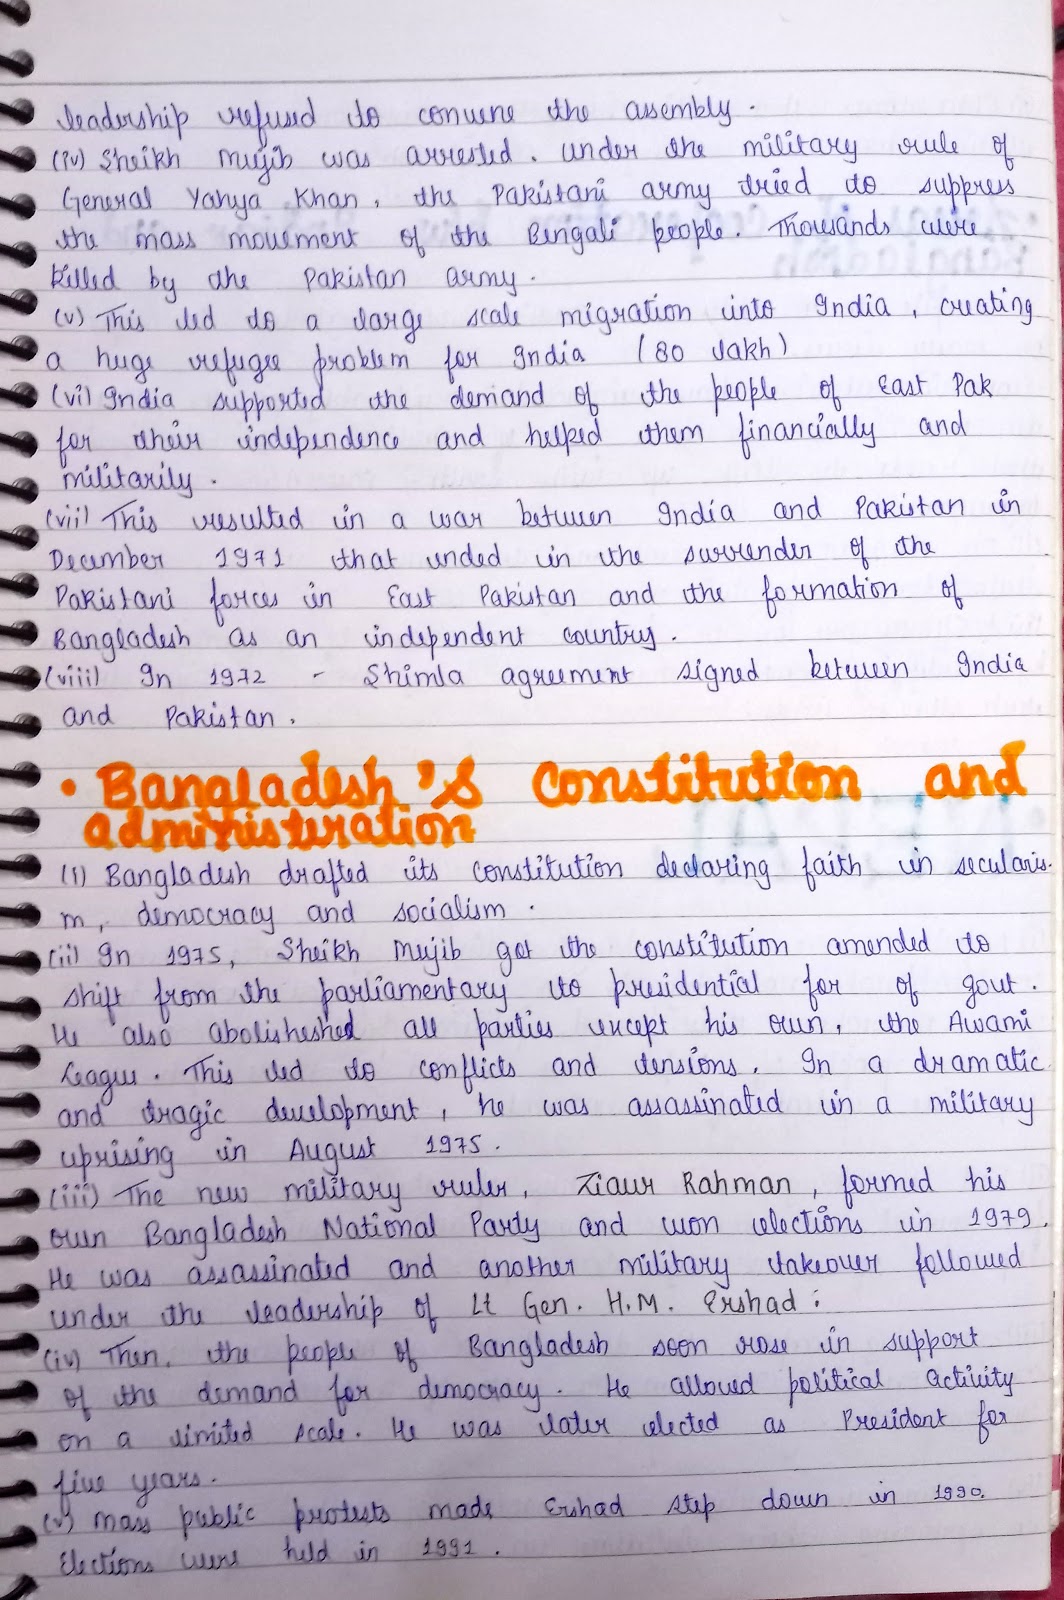 leadership refused to convene the assembly.
(iv) Sheikh Mujib was arrested. Under the military rule of
General Yahya Khan, the Pakistani army tried to suppress
the mass movement of the Bengali people. Thousands were
killed by the Pakistan army.
(v) This led to a large scale migration into India, creating
a huge refugee problem for India (80 lakh)
(vi) India supported the demand of the people of East Pak
for their independence and helped them financially and
militarily.
(vii) This resulted in a war between India and Pakistan in
December 1971 that ended in the surrender of the
Pakistani forces in East Pakistan and the formation of
Bangladesh as an independent country.
(viii) In 1972 - Shimla agreement signed between India
and Pakistan.
• Bangladesh's Constitution and
administeration
(i) Bangladesh drafted its constitution declaring faith in secularis-
m, democracy and socialism.
(ii) In 1975, Sheikh Mujib got the constitution amended to
shift from the parliamentary to presidential for of govt.
He also abolisheshed all parties except his own, the Awami
League. This led to conflicts and tensions. In a dramatic
and tragic development, he was assassinated in a military
uprising in August 1975.
(iii) The new military ruler, Ziaur Rahman, formed his
own Bangladesh National Party and won elections in 1979.
He was assassinated and another military takeover followed
under the leadership of Lt Gen. H.M. Ershad:
(iv) Then, the people of Bangladesh soon rose in support
of the demand for democracy. He allowed political activity
on a limited scale. He was later elected as President for
five years.
(v) Mass public protests made Ershad step down in 1990.
Elections were held in 1991.